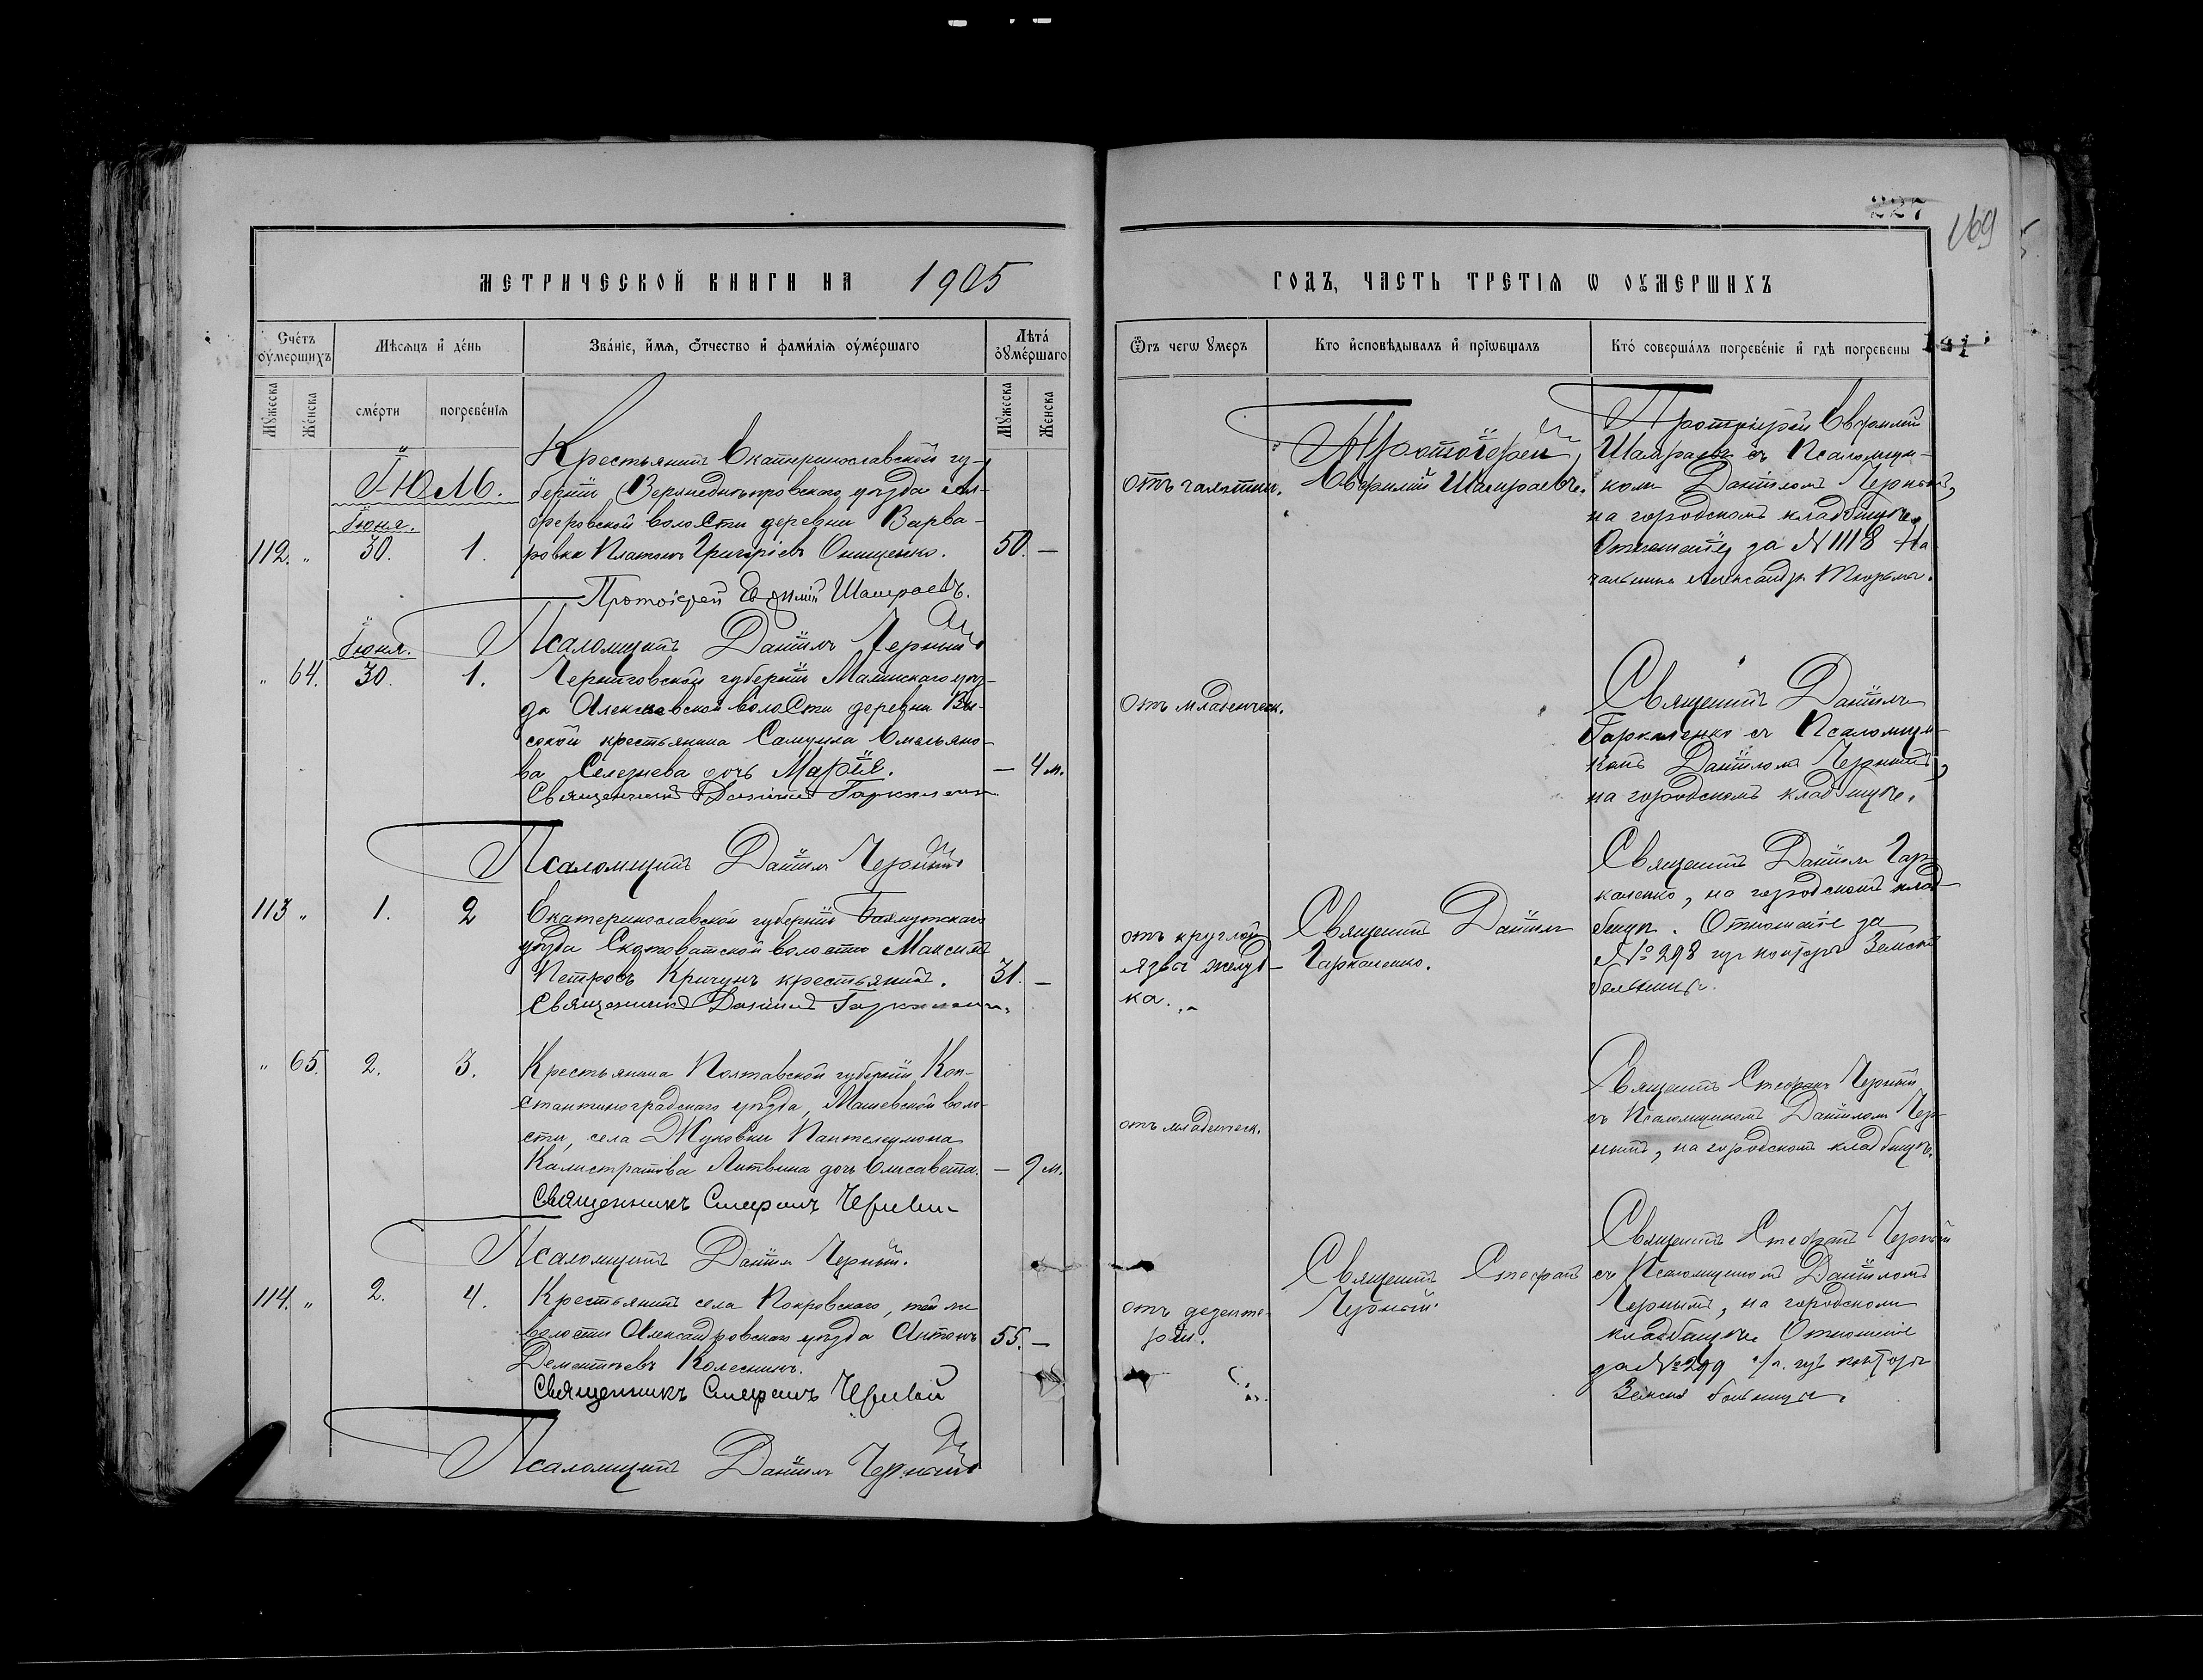 227
169
МЕТРИЧЕСКОЙ КНИГИ НА 1905
ГОДЪ, ЧАСТЬ ТРЕТІѦ Ѡ ОУМЕРШИХЪ
Счетъ оумершихъ
Мѣсѧцъ и день
Званіе, имѧ, Отчество и фамиліѧ оумершаго
Лѣта оумершаго
Мужеска
Женска
смерти
погребеніѧ
Мужеска
Женска
Ѿъ чегѡ умеръ
Кто исповѣдывалъ и пріѡбщалъ
Кто совершалъ погребеніе и гдѣ погребены
Іюль.
Іюня.
112. „ 30. 1.
Крестьянинъ Екатеринославской гу-
берніи Верхнеднѣпровскаго уѣзда
волости деревни Варва-
ровки Платонъ Григоріевъ Онищенко. 50. —
Протоіерей Евфимій Шамраевъ.
Псаломщикъ Даніилъ Черный
Протоіерей
Евфимій Шамраевъ.
Протоіерей Евфимій
Шамраевъ съ Псаломщи-
комъ Даніиломъ Чернымъ,
на городскомъ кладбищѣ.
Отношеніе за № 1118 На-
чальника Александр. Тюрьмы.
Іюня.
„ 64. 30. 1.
Черниговской губерніи Мглинскаго уѣз-
да волости деревни Вы-
сокой крестьянина Самуила Омельяно-
ва Селезнева дочь Марія. — 4 м.
Священникъ Даніилъ Гаркаленко
Псаломщикъ Даніилъ Черный
отъ младенческ.
Священникъ Даніилъ
Гаркаленко съ Псаломщи-
комъ Даніиломъ Чернымъ,
на городскомъ кладбищѣ.
113 „ 1. 2
Екатеринославской губерніи Бахмутскаго
уѣзда Скотоватской волости Максимъ
Петровъ Кричунъ крестьянинъ. 31. —
Священникъ Даніилъ Гаркаленко.
отъ круглой
язвы желуд-
ка.
Священникъ Даніилъ
Гаркаленко.
Священникъ Даніилъ Гар-
каленко, на городскомъ клад-
бищѣ. Отношеніе за
№ 298 изъ конторы Земской
больницы.
„ 65. 2. 3.
Крестьянина Полтавской губерніи Кон-
стантиноградскаго уѣзда, Машевской воло-
сти, села Жуковки Пантелеимона
Калистратова Литвина дочь Елисавета. — 9 м.
Священникъ Стефанъ Черный
Псаломщикъ Даніилъ Черный.
отъ младенческ.
Священникъ Стефанъ Черный
съ Псаломщикомъ Даніиломъ Чер-
нымъ, на городскомъ кладбищѣ.
114. „ 2. 4.
Крестьянинъ села Покровскаго, той же
волости Александровскаго уѣзда Антонъ 55. —
Дементьевъ Колесникъ.
Священникъ Стефанъ Черный
Псаломщикъ Даніилъ Черный
отъ дезенте-
ріи.
Священникъ Стефанъ
Черный.
Священникъ Стефанъ Черный
съ Псаломщикомъ Даніиломъ
Чернымъ, на городскомъ
кладбищѣ. Отношеніе
за № 299 изъ конторы
Земской больницы.